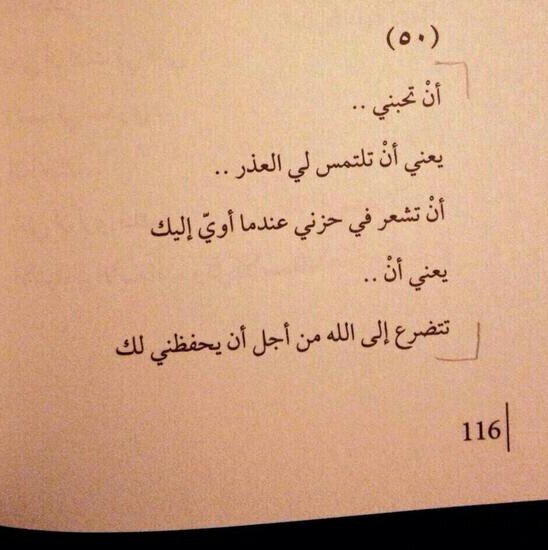 (٥٠)
أنْ تحبني ..
يعني أنْ تلتمس لي العذر ..
أنْ تشعر في حزني عندما أويّ إليك
يعني أنْ ..
تتضرع إلى الله من أجل أن يحفظني لك
116